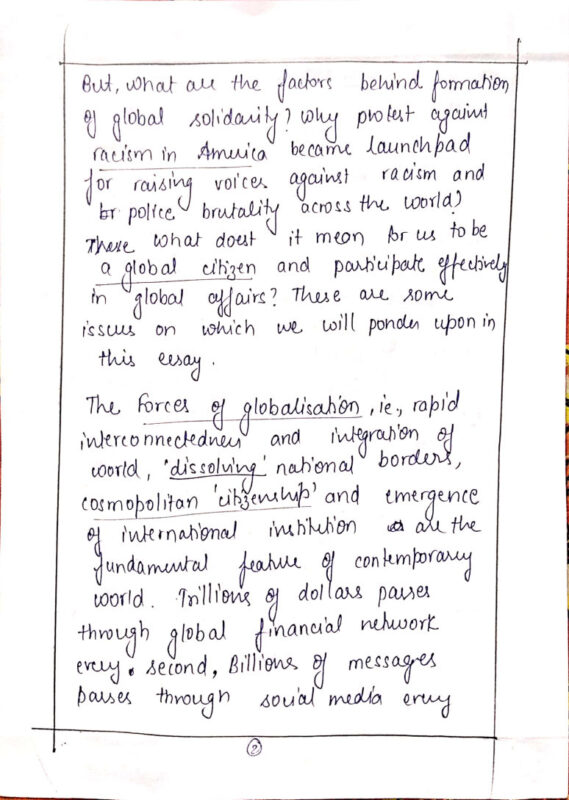 But, what are the factors behind formation
of global solidarity? Why protest against
racism in America became launchpad
for raising voices against racism and
police brutality across the world?
What does it mean for us to be
a global citizen and participate effectively
in global affairs? These are some
issues on which we will ponder upon in
this eesay.
The forces of globalisation, ie., rapid
interconnectedness and integration of
world, 'dissolving' national borders,
cosmopolitan 'citizenship' and emergence
of international institution are the
fundamental feature of contemporary
world. Trillions of dollars passes
through global financial network
every second, Billions of messages
passes through social media every
2